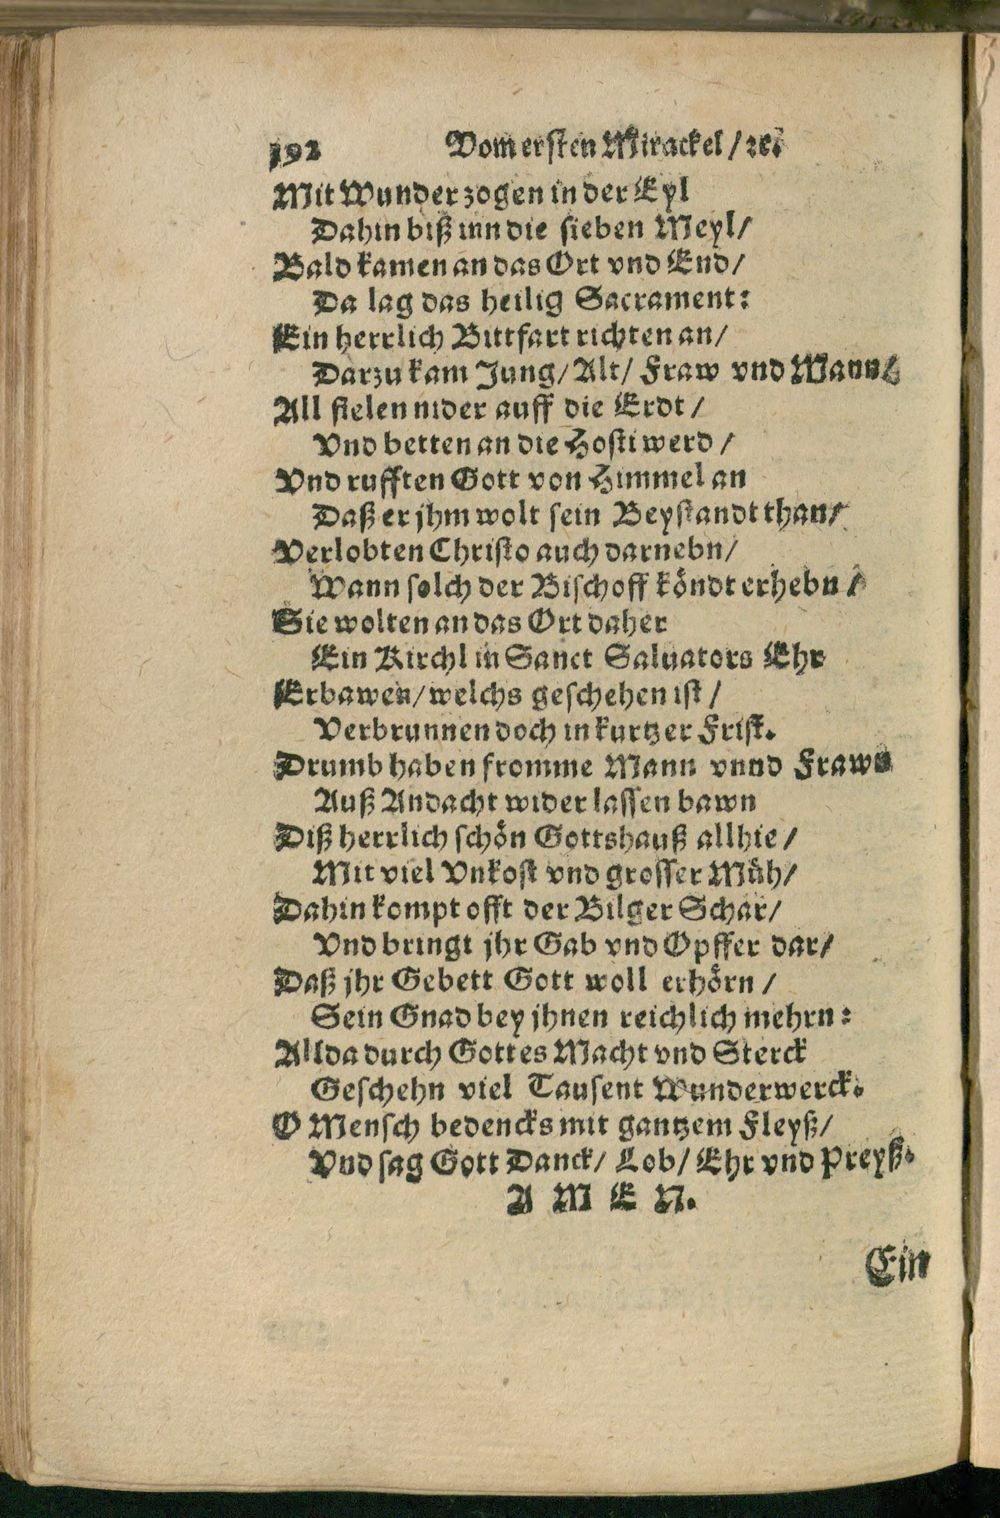 192 Vom ersten Mirackel / ꝛc.
Mit Wunder zogen in der Eyl
Dahin biß inn die sieben Meyl /
Bald kamen an das Ort vnd End /
Da lag das heilig Sacrament:
Ein herrlich Bittfart richten an /
Darzu kam Jung / Alt / Fraw vnd Mann /
All fielen nider auff die Erdt /
Vnd betten an die Hosti werd /
Vnd rufften Gott von Himmel an
Daß er jhm wolt sein Beystandt than /
Verlobten Christo auch darnebn /
Wann solch der Bischoff köndt erhebn /
Sie wolten an das Ort daher
Ein Kirchl in Sanct Saluators Ehr
Erbawen / welchs geschehen ist /
Verbrunnen doch in kurtzer Frist.
Drumb haben fromme Mann vnnd Frawn
Auß Andacht wider lassen bawn
Diß herrlich schön Gottshauß allhie /
Mit viel Vnkost vnd grosser Müh /
Dahin kompt offt der Bilger Schar /
Vnd bringt jhr Gab vnd Opffer dar /
Daß jhr Gebett Gott woll erhörn /
Sein Gnad bey jhnen reichlich mehrn:
Allda durch Gottes Macht vnd Sterck
Geschehn viel Tausent Wunderwerck.
O Mensch bedencks mit gantzem Fleyß /
Vnd sag Gott Danck / Lob / Ehr vnd Preyß.
A M E N.
Ein